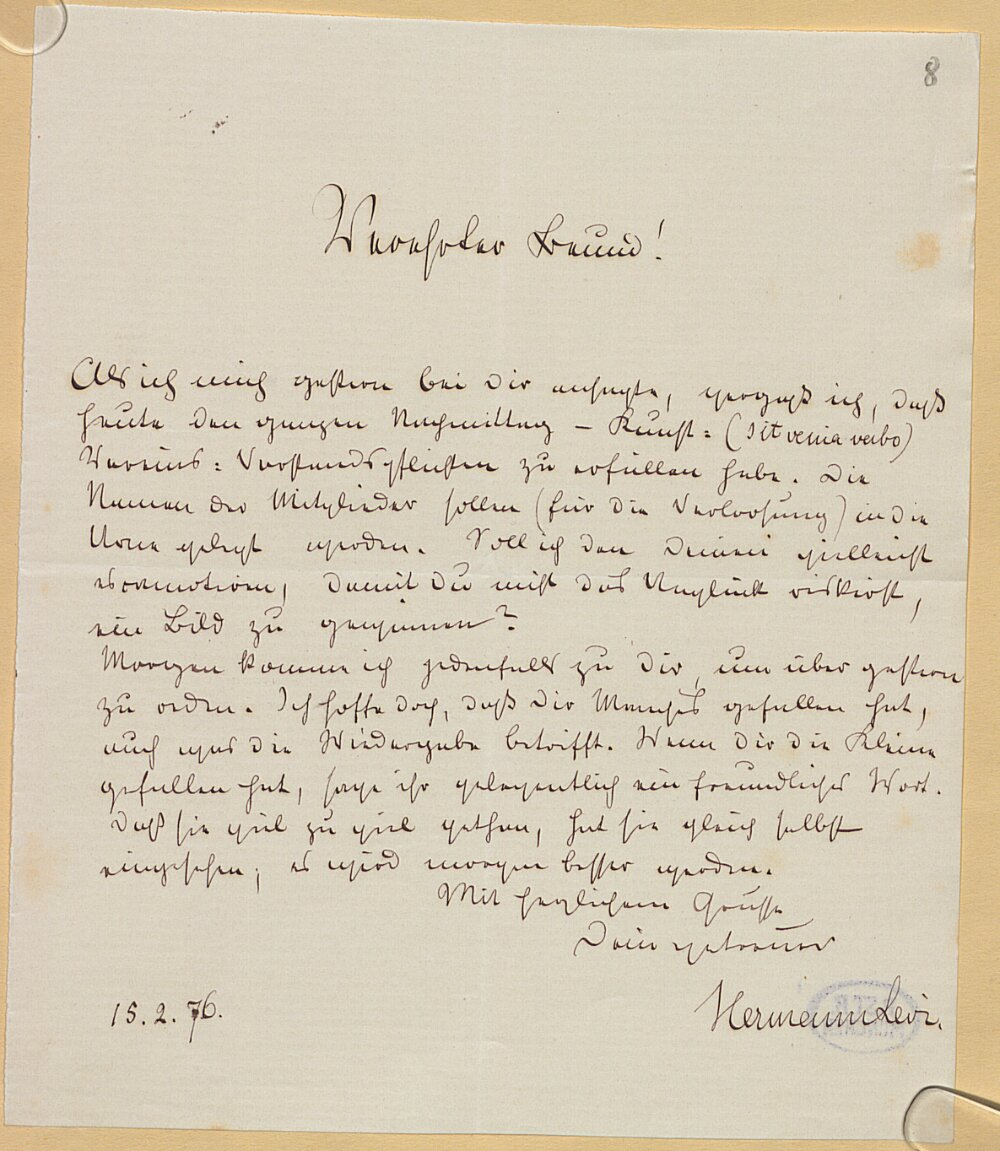 8
Verehrter Freund!
Als ich mich gestern bei Dir ansagte, vergaß ich, daß
heute den ganzen Nachmittag – Kunst= (sit venia verbo)
Vereins=Vorstandspflichten zu erfüllen habe. Die
Namen der Mitglieder sollen (für die Verloosung) in die
Urne gelegt werden. Soll ich den Deinen vielleicht
escamotiren, damit Du nicht das Unglück riskirst,
ein Bild zu gewinnen?
Morgen komme ich jedenfalls zu Dir, um über gestern
zu reden. Ich hoffe doch, daß Dir Manches gefallen hat,
auch was die Wiedergabe betrifft. Wenn Dir die Kleine
gefallen hat, sage ihr gelegentlich ein freundliches Wort.
Daß sie viel zu viel gethan, hat sie gleich selbst
eingesehen; es wird morgen besser werden.
Mit herzlichem Grusse
Dein getreuer
15.2.76. Hermann Levi.